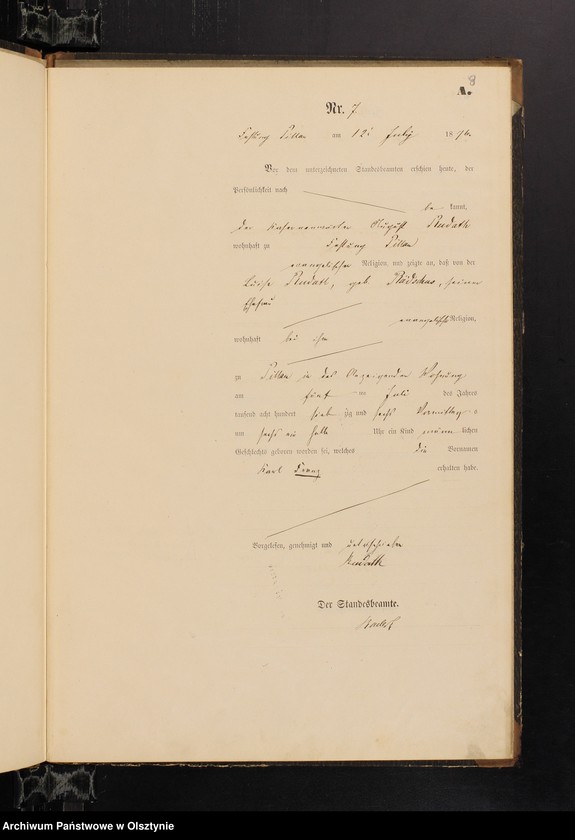 8
A.
Nr. 7
Festung Pillau am 12. July 1876.
Vor dem unterzeichneten Standesbeamten erschien heute, der
Persönlichkeit nach
be kannt,
der Kasernenwärter August Rudath
wohnhaft zu Festung Pillau
evangelischer Religion, und zeigte an, daß von der
Luise Rudath, geb. seiner
Ehefrau
evangelischer Religion,
wohnhaft bei ihm
zu Pillau in des Anzeigenden Wohnung
am fünf ten Juli des Jahres
tausend acht hundert sieb zig und sechs Vormittags
um sechs ein halb Uhr ein Kind männ lichen
Geschlechts geboren worden sei, welches die Vornamen
Karl Franz erhalten habe.
Vorgelesen, genehmigt und unterschrieben
Rudath
Der Standesbeamte.
Archiwum Państwowe w Olsztynie